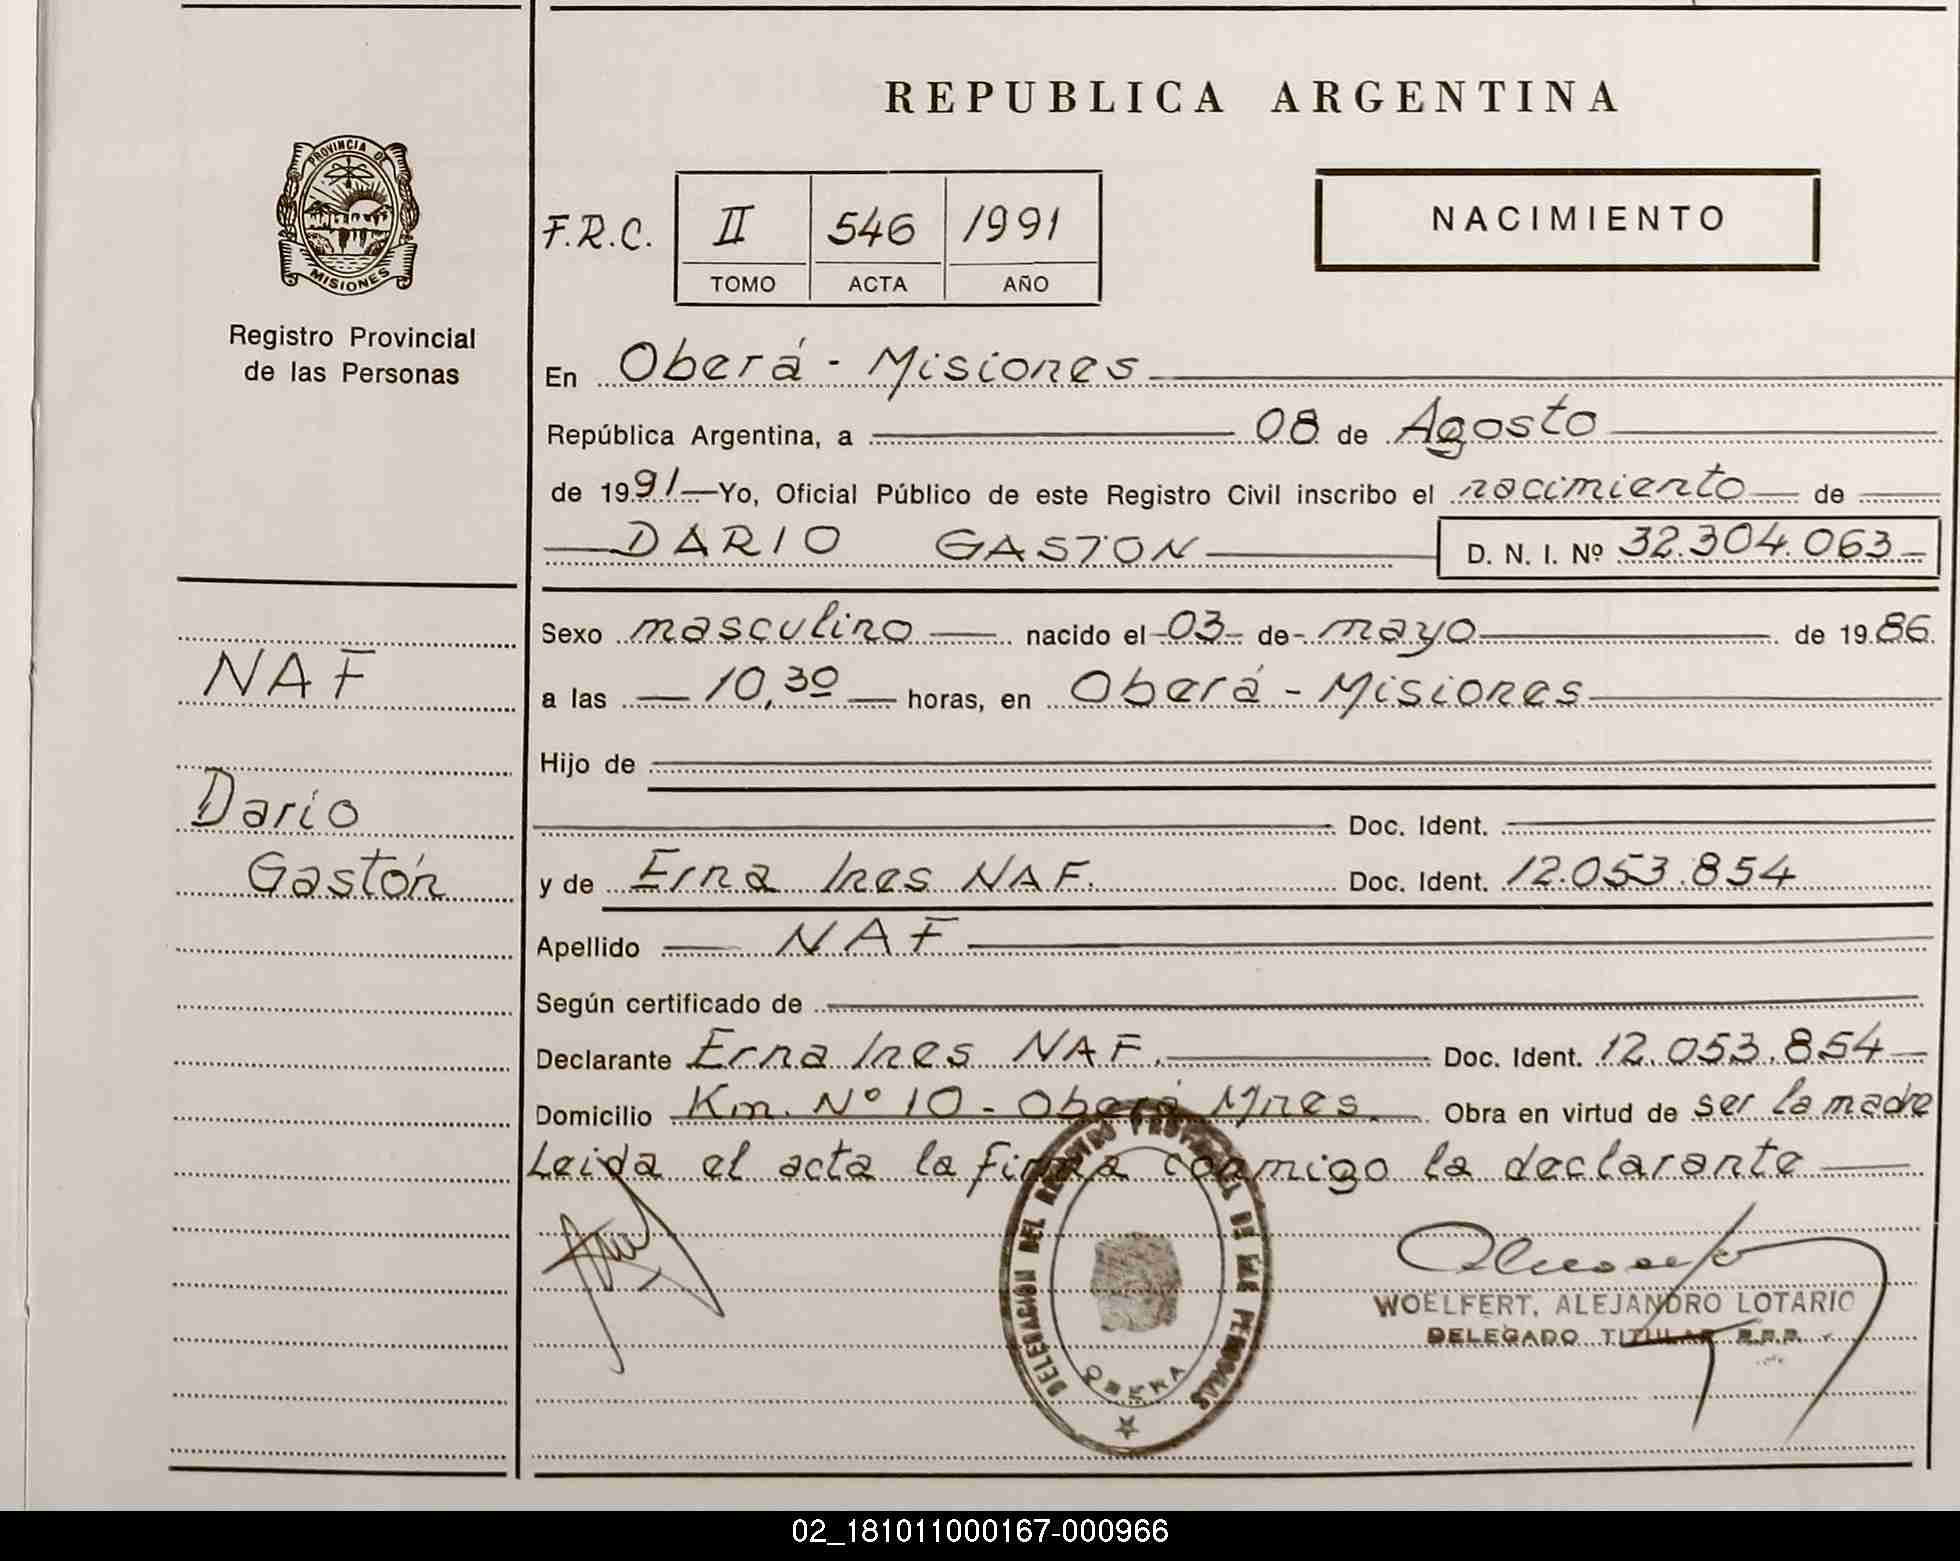 REPUBLICA ARGENTINA
PROVINCIA DE MISIONES
Registro Provincial
de las Personas
F.R.C. II 546 1991
TOMO ACTA AÑO
NACIMIENTO
En Oberá - Misiones
República Argentina, a 08 de Agosto
de 1991 Yo, Oficial Público de este Registro Civil inscribo el nacimiento de
DARIO GASTON D. N. I. Nº 32.304.063
NAF
Dario
Gastón
Sexo masculino nacido el 03 de mayo de 1986
a las 10,30 horas, en Oberá - Misiones
Hijo de
Doc. Ident.
y de Erna Ines NAF. Doc. Ident. 12.053.854
Apellido NAF
Según certificado de
Declarante Erna Ines NAF. Doc. Ident. 12.053.854
Domicilio Km. Nº 10 - Oberá Mnes. Obra en virtud de ser la madre
Leida el acta la firma conmigo la declarante
DELEGACION DEL REGISTRO PROVINCIAL DE LAS PERSONAS
OBERA
WOELFERT, ALEJANDRO LOTARIO
DELEGADO TITULAR R.P.P.
02_181011000167-000966